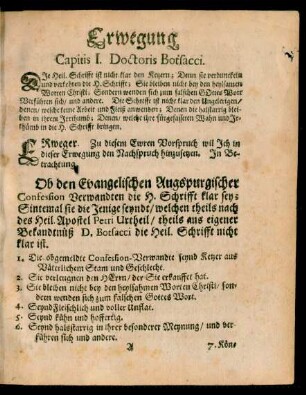 Erwegung
Capitis I. Doctoris Botsacci.
DJe Heil. Schrifft ist nicht klar den Ketzern; Denn sie verdunckeln
und verkehren die H. Schrifft. Sie bleiben nicht bey den heylsamen
Worten Christi. Sondern wenden sich zum falschen Gottes Wort
Verführen sich/ und andere. Die Schrifft ist nicht klar den Ungelerigen/
denen/ welche keine Arbeit und Fleiß anwenden; Denen die halstarrig blei-
ben in ihrem Irrthumb: Denen/ welche ihre fürgefasseten Wahn und Ir-
thümb in die H. Schrifft bringen.
ERweger. Zu diesem Euren Vorspruch wil Ich in
dieser Erwegung den Nachspruch hinzusetzen. In Be-
trachtung
Ob den Evangelischen Augspurgischer
Confession Verwandten die H. Schrifft klar sey;
Sintemal sie die Jenige seyndt/ welchen theils nach
des Heil. Apostel Petri Urtheil/ theils aus eigener
Bekandtnüß D. Botsacci die Heil. Schrifft nicht
klar ist.
1. Die obgemeldte Confession-Verwandte seynd Ketzer aus
Väterlichem Stam und Geschlecht.
2. Sie verleugnen den HErrn/ der Sie erkauffet hat.
3. Sie bleiben nicht bey den heylsamen Worten Christi/ son-
dern wenden sich zum falschen Gottes Wort.
4. Seynd Fleischlich und voller Unflat.
5. Seynd kühn und hoffertig.
6. Seynd halsstarrig in ihrer besonderer Meynung/ und ver-
führen sich und andere.
A 7. Kön-